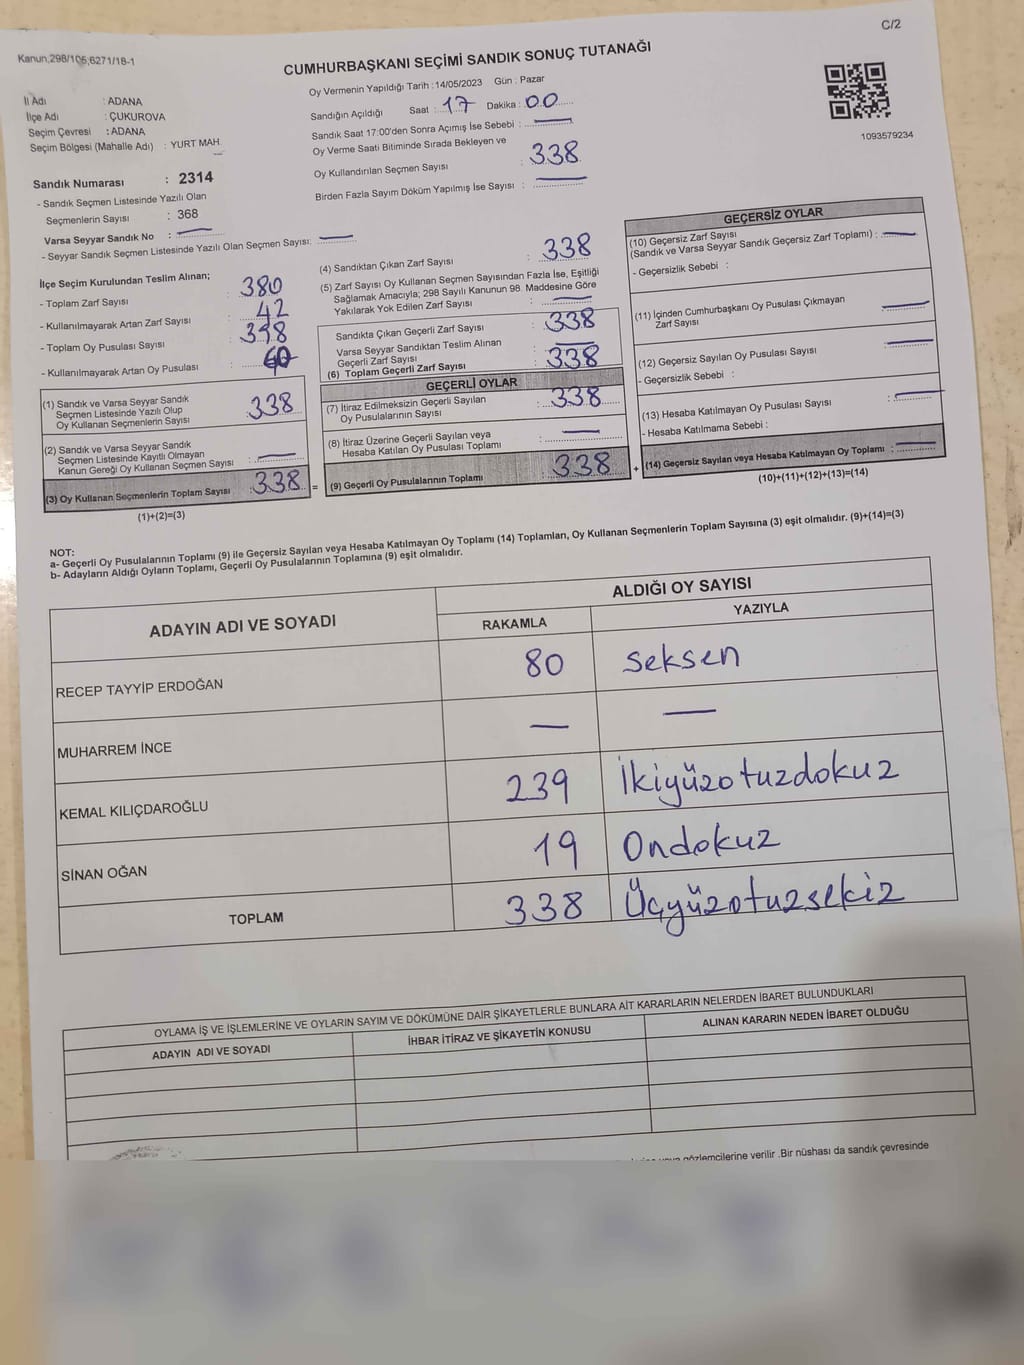 C/2
Kanun,298/105,6271/18-1
CUMHURBAŞKANI SEÇİMİ SANDIK SONUÇ TUTANAĞI
Oy Vermenin Yapıldığı Tarih : 14/05/2023 Gün : Pazar
İl Adı : ADANA
İlçe Adı : ÇUKUROVA
Seçim Çevresi : ADANA
Seçim Bölgesi (Mahalle Adı) : YURT MAH.
Sandığın Açıldığı Saat : 17 Dakika : 00
Sandık Saat 17:00'den Sonra Açımış İse Sebebi :
Oy Verme Saati Bitiminde Sırada Bekleyen ve
Oy Kullandırılan Seçmen Sayısı : 338
Birden Fazla Sayım Döküm Yapılmış İse Sayısı :
1093579234
Sandık Numarası : 2314
- Sandık Seçmen Listesinde Yazılı Olan
Seçmenlerin Sayısı : 368
Varsa Seyyar Sandık No :
- Seyyar Sandık Seçmen Listesinde Yazılı Olan Seçmen Sayısı:
İlçe Seçim Kurulundan Teslim Alınan;
- Toplam Zarf Sayısı : 380
- Kullanılmayarak Artan Zarf Sayısı : 42
- Toplam Oy Pusulası Sayısı :
- Kullanılmayarak Artan Oy Pusulası :
(1) Sandık ve Varsa Seyyar Sandık
Seçmen Listesinde Yazılı Olup
Oy Kullanan Seçmenlerin Sayısı : 338
(2) Sandık ve Varsa Seyyar Sandık
Seçmen Listesinde Kayıtlı Olmayan
Kanun Gereği Oy Kullanan Seçmen Sayısı :
(3) Oy Kullanan Seçmenlerin Toplam Sayısı : 338
(1)+(2)=(3)
=
(4) Sandıktan Çıkan Zarf Sayısı : 338
(5) Zarf Sayısı Oy Kullanan Seçmen Sayısından Fazla İse, Eşitliği
Sağlamak Amacıyla; 298 Sayılı Kanunun 98. Maddesine Göre
Yakılarak Yok Edilen Zarf Sayısı :
Sandıkta Çıkan Geçerli Zarf Sayısı : 338
Varsa Seyyar Sandıktan Teslim Alınan
Geçerli Zarf Sayısı :
(6) Toplam Geçerli Zarf Sayısı : 338
GEÇERLİ OYLAR
(7) İtiraz Edilmeksizin Geçerli Sayılan
Oy Pusulalarının Sayısı : 338
(8) İtiraz Üzerine Geçerli Sayılan veya
Hesaba Katılan Oy Pusulası Toplamı :
(9) Geçerli Oy Pusulalarının Toplamı : 338
+
GEÇERSİZ OYLAR
(10) Geçersiz Zarf Sayısı
(Sandık ve Varsa Seyyar Sandık Geçersiz Zarf Toplamı) :
- Geçersizlik Sebebi :
(11) İçinden Cumhurbaşkanı Oy Pusulası Çıkmayan
Zarf Sayısı :
(12) Geçersiz Sayılan Oy Pusulası Sayısı :
- Geçersizlik Sebebi :
(13) Hesaba Katılmayan Oy Pusulası Sayısı :
- Hesaba Katılmama Sebebi :
(14) Geçersiz Sayılan veya Hesaba Katılmayan Oy Toplamı :
(10)+(11)+(12)+(13)=(14)
NOT:
a- Geçerli Oy Pusulalarının Toplamı (9) ile Geçersiz Sayılan veya Hesaba Katılmayan Oy Toplamı (14) Toplamları, Oy Kullanan Seçmenlerin Toplam Sayısına (3) eşit olmalıdır. (9)+(14)=(3)
b- Adayların Aldığı Oyların Toplamı, Geçerli Oy Pusulalarının Toplamına (9) eşit olmalıdır.
ADAYIN ADI VE SOYADI ALDIĞI OY SAYISI
RAKAMLA YAZIYLA
RECEP TAYYİP ERDOĞAN 80 seksen
MUHARREM İNCE — —
KEMAL KILIÇDAROĞLU 239 İkiyüzotuzdokuz
SİNAN OĞAN 19 Ondokuz
TOPLAM 338 Üçyüzotuzsekiz
OYLAMA İŞ VE İŞLEMLERİNE VE OYLARIN SAYIM VE DÖKÜMÜNE DAİR ŞİKAYETLERLE BUNLARA AİT KARARLARIN NELERDEN İBARET BULUNDUKLARI
ADAYIN ADI VE SOYADI İHBAR İTİRAZ VE ŞİKAYETİN KONUSU ALINAN KARARIN NEDEN İBARET OLDUĞU
gözlemcilerine verilir .Bir nüshası da sandık çevresinde